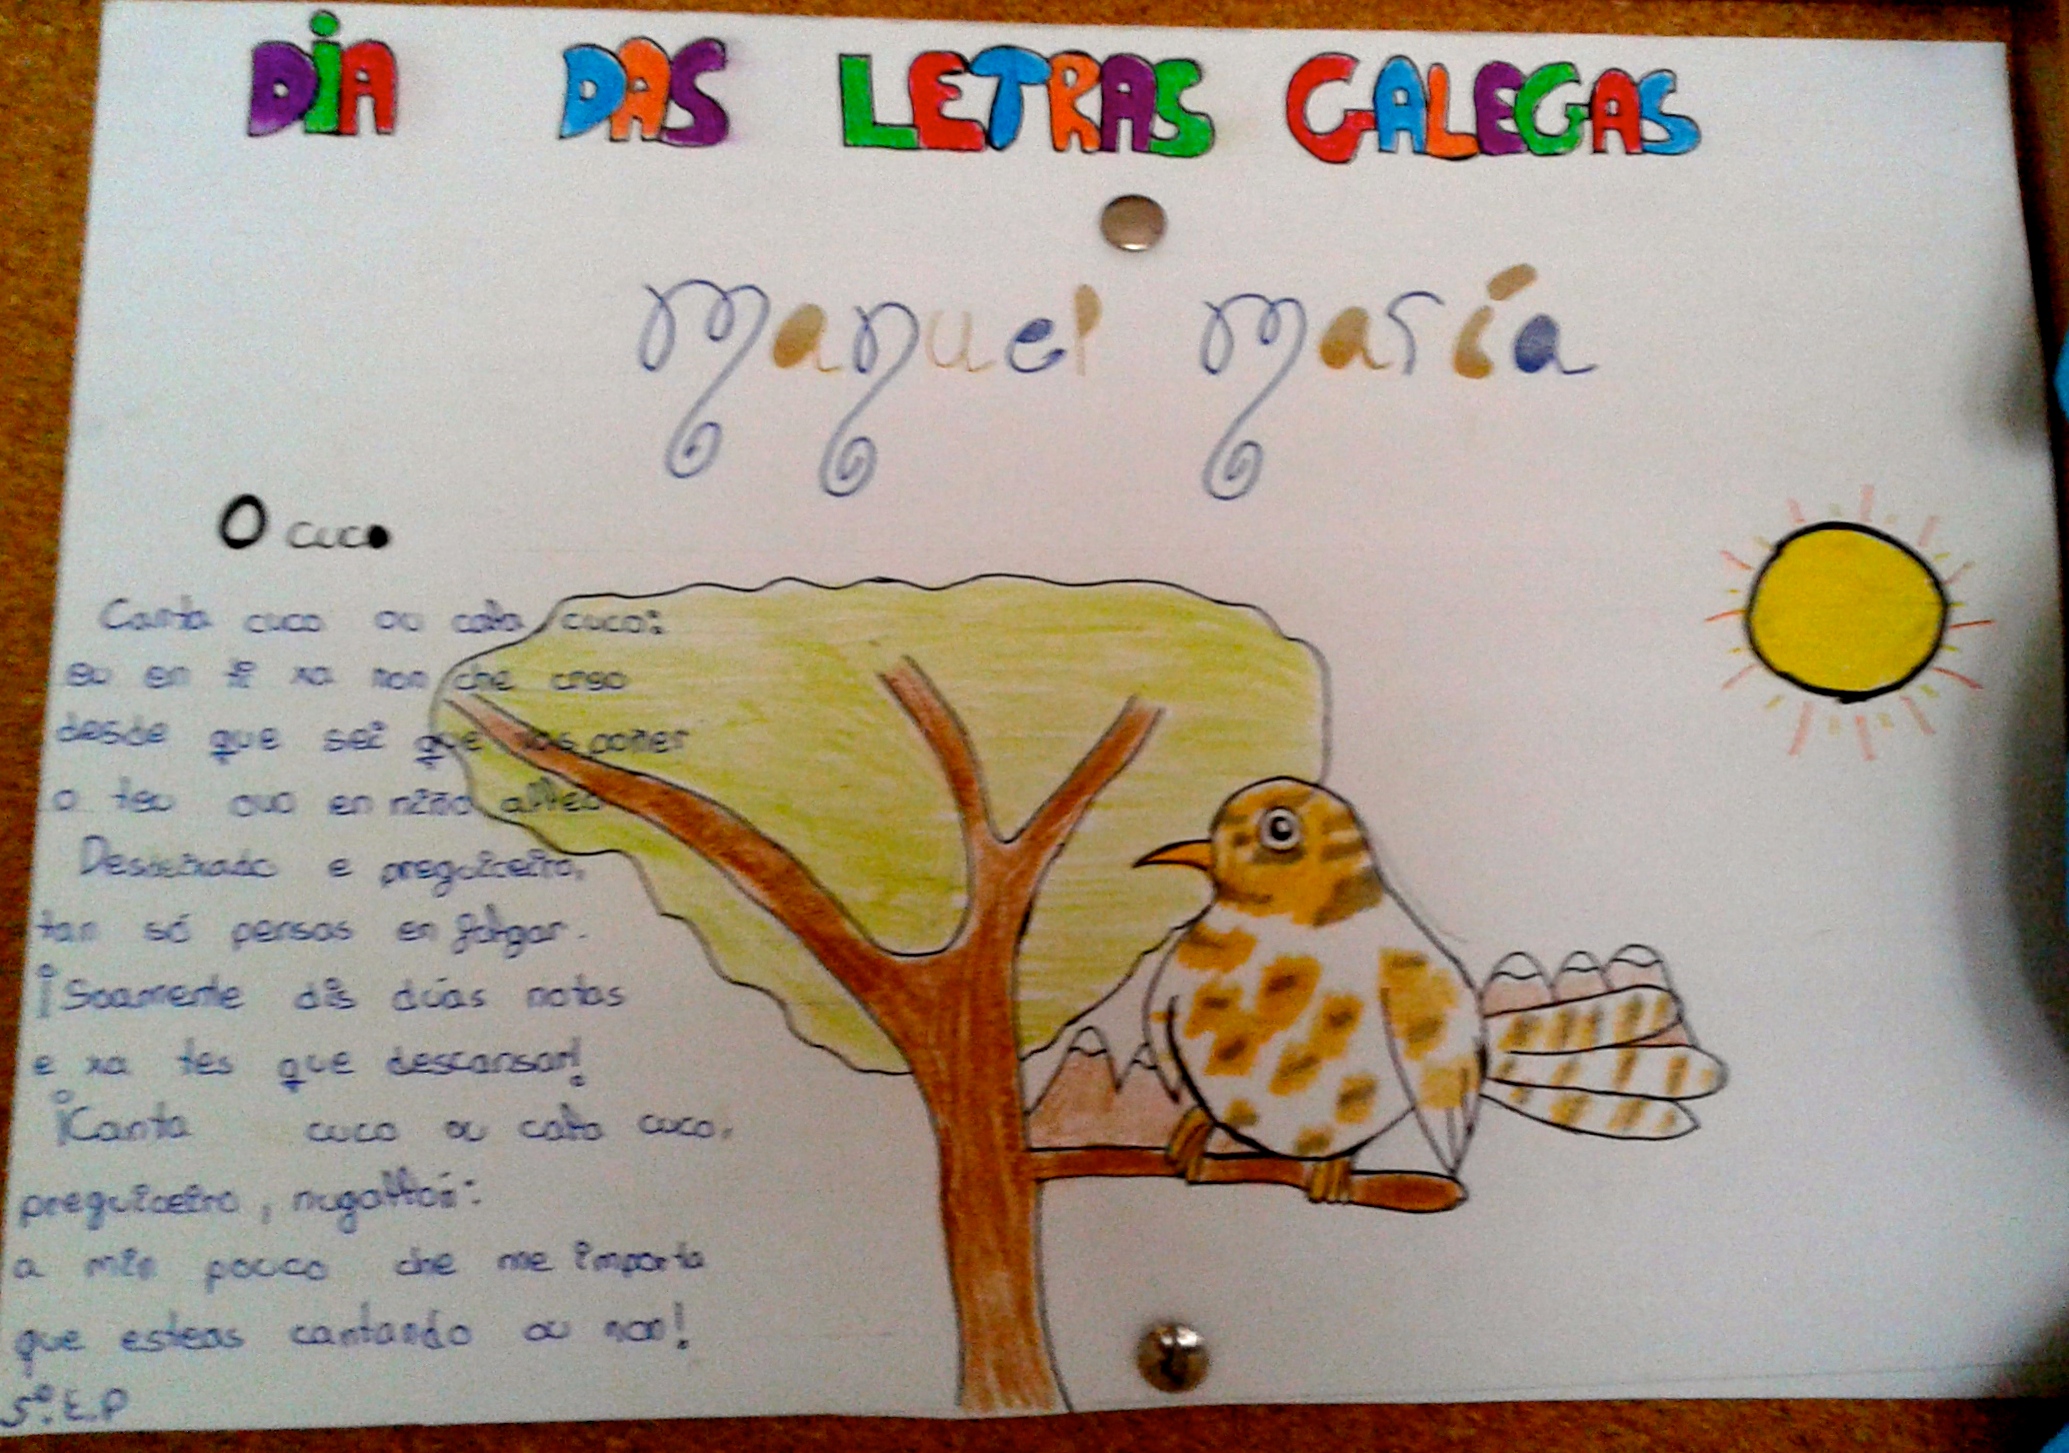 DiA DAS LETRAS GALEGAS
Manuel María
O cuco
Canta cuco ou cala cuco:
eu en ti xa non che creo
desde que sei que vas poñer
o teu ovo en niño alleo.
Desleixado e preguiceiro,
tan só pensas en folgar.
¡Soamente dis dúas notas
e xa tes que descansar!
¡Canta cuco ou cala cuco,
preguiceiro, nugallán:
a min pouco che me importa
que esteas cantando ou non!
5º.E.P